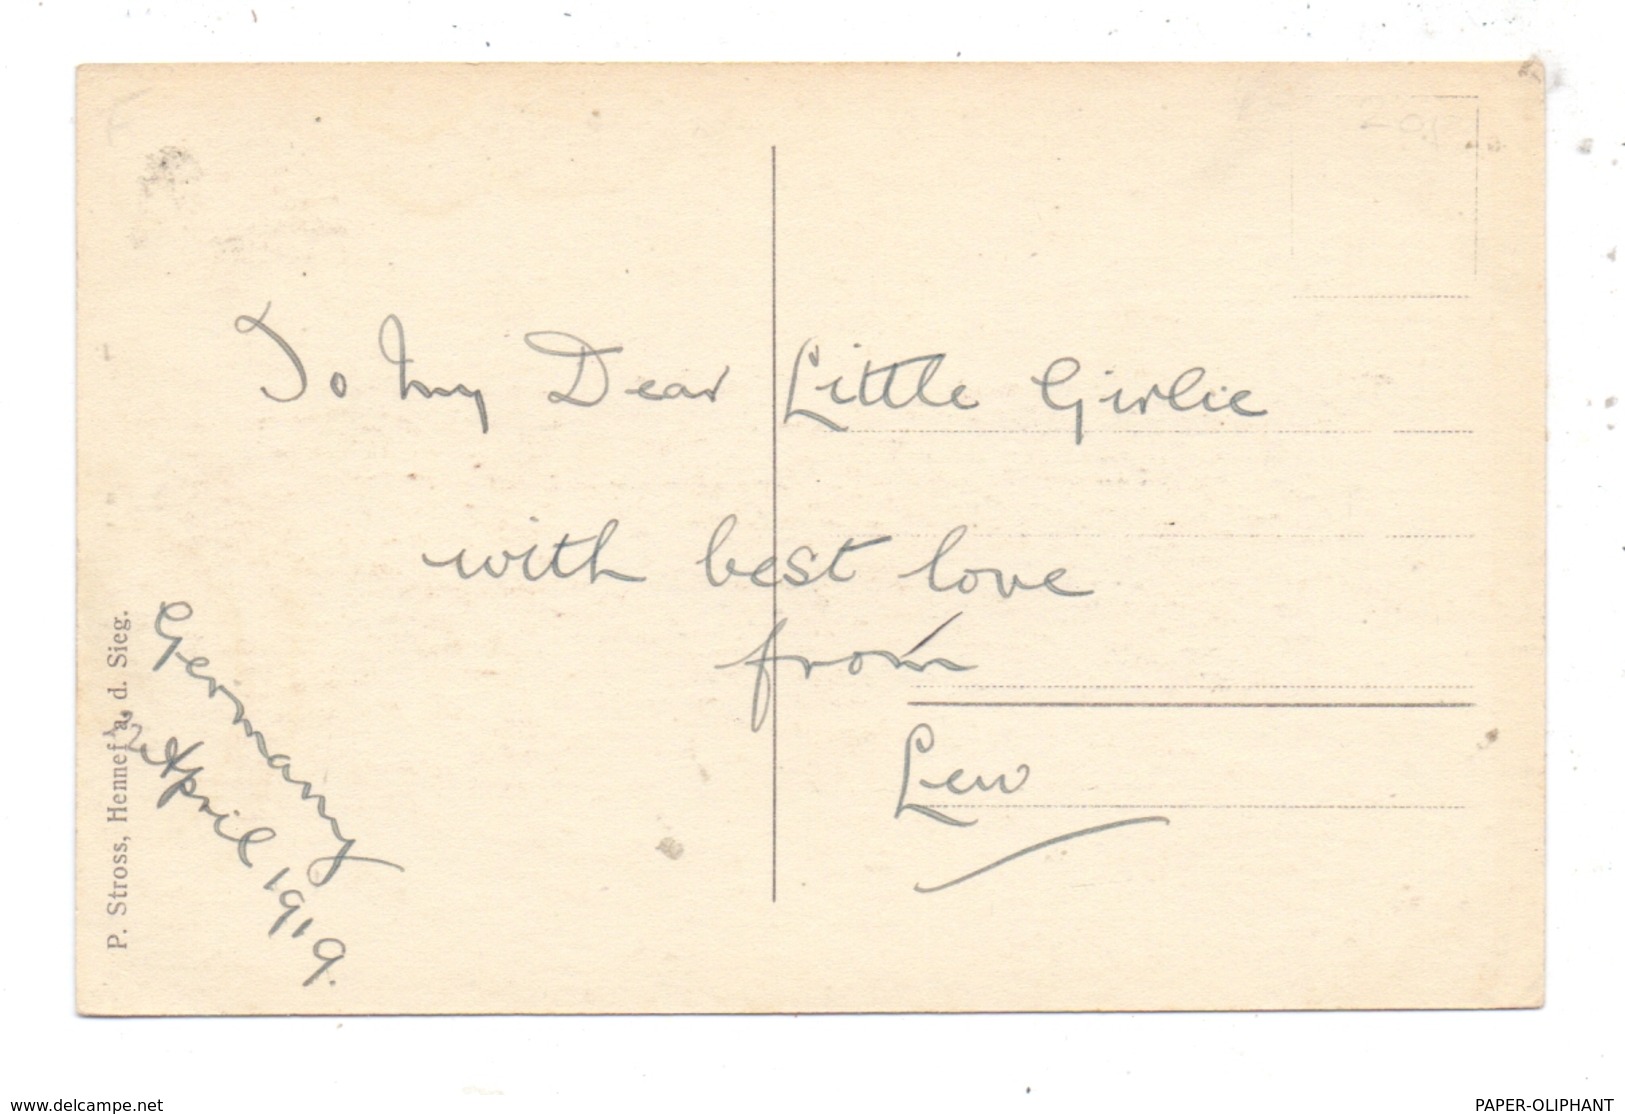 To my Dear Little Girlie
with best love
from
Lew
Germany
April 1919.
P. Stross, Hennef a. d. Sieg.
www.delcampe.net
PAPER-OLIPHANT